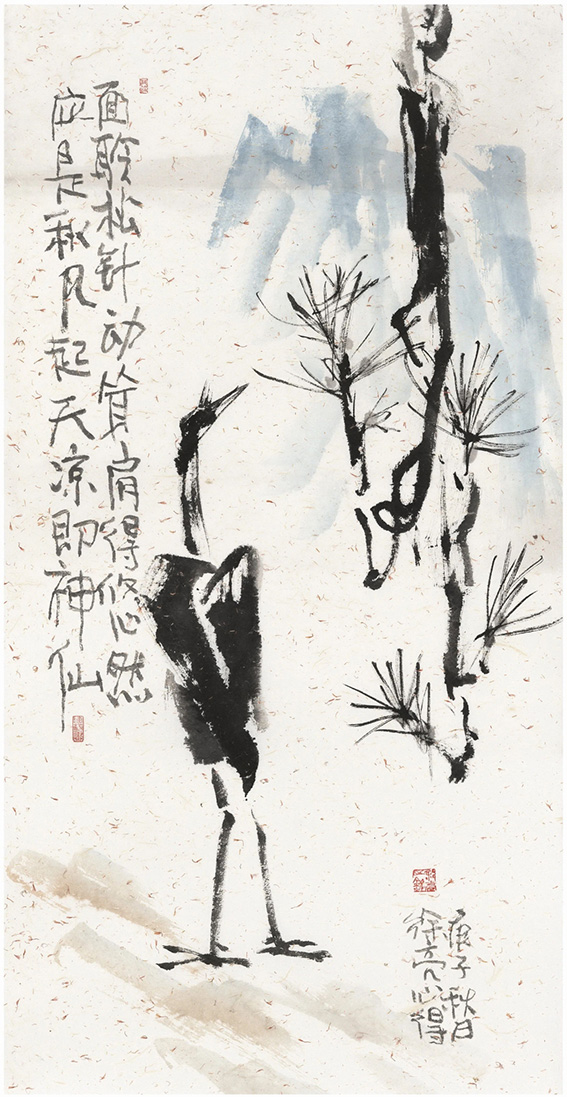 面聆松针动肩得悠然
应是秋风起天凉即神仙
庚子秋日
徐亮心得